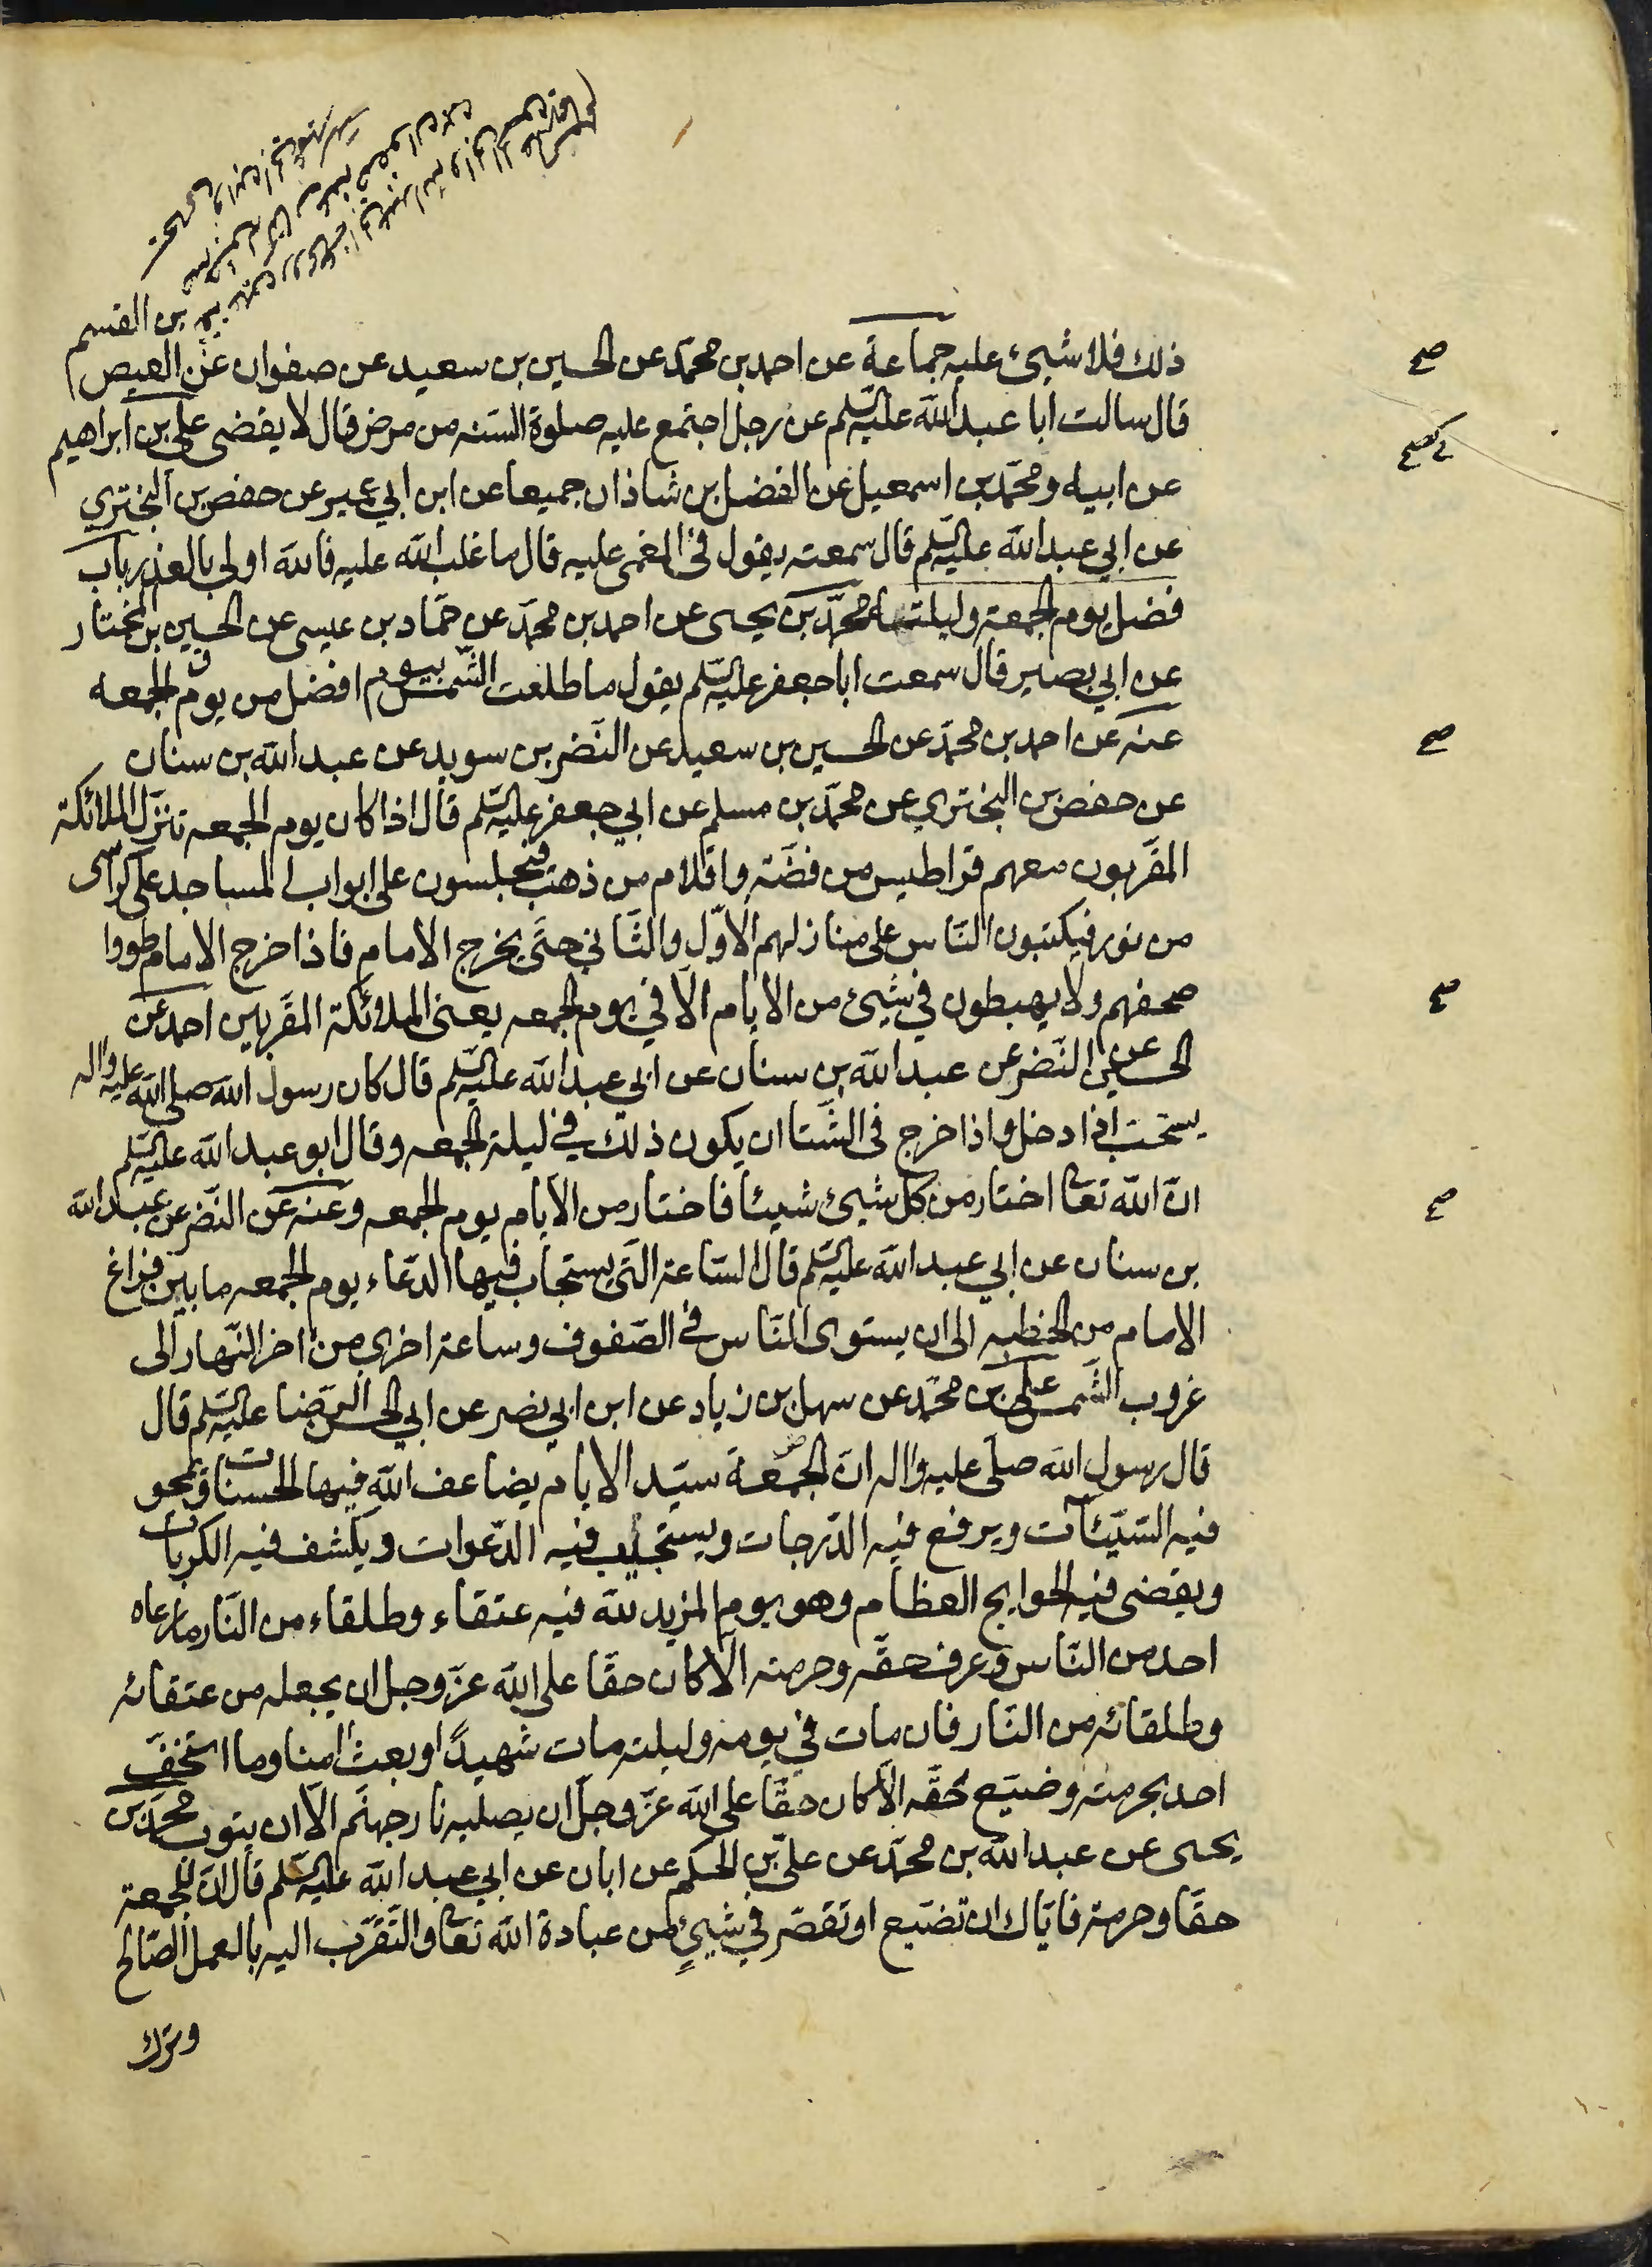 بن القسم
ذلك فلا شيئ عليه جماعة عن احمد بن محمّد عن الحسين بن سعيد عن صفوان عن العيص
صح
قال سالت ابا عبد الله عليه السّلم عن رجل اجتمع عليه صلوة السّنه من مرض قال لا يقضى علي بن ابراهيم
عن ابيه و محمّد بن اسمعيل عن الفضل بن شاذان جميعا عن ابن ابي عمير عن حفص بن البختري
عن ابي عبد الله عليه السّلم قال سمعته يقول في المغمى عليه قال ما غلب الله عليه فالله اولى بالعذر باب
فضل يوم الجمعة وليلته محمّد بن يحيى عن احمد بن محمّد عن حمّاد بن عيسى عن الحسين بن المختار
عن ابي بصير قال سمعت ابا جعفر عليه السّلم يقول ما طلعت الشّمس بيوم افضل من يوم الجمعه
عنه عن احمد بن محمّد عن الحسين بن سعيد عن النّضر بن سويد عن عبد الله بن سنان
صح
عن حفص بن البختري عن محمّد بن مسلم عن ابي جعفر عليه السّلم قال اذا كان يوم الجمعه تنزّل الملائكة
المقرّبون معهم قراطيس من فضّة واقلام من ذهب فيجلسون على ابواب المساجد على كراسى
من نور فيكتبون النّاس على منازلهم الاوّل والثّاني حتّى يخرج الامام فاذا خرج الامام طووا
صحفهم ولا يهبطون في شيئ من الايّام الّا في يوم الجمعه يعنى الملائكة المقرّبين احمد عن
صح
الحسين عن النّضر عن عبد الله بن سنان عن ابي عبد الله عليه السّلم قال كان رسول الله صلى الله عليه واله
يستحبّ اذا دخل واذا خرج فى الشّتا ان يكون ذلك في ليلة الجمعه وقال ابو عبد الله عليه السّلم
انّ الله تعا اختار من كلّ شيئ شيئا فاختار من الايّام يوم الجمعه وعنه عن النّضر عن عبد الله
صح
بن سنان عن ابي عبد الله عليه السّلم قال السّاعة الّتى يستجاب فيها الدّعاء يوم الجمعه ما بين فراغ
الامام من الخطبه الى ان يستوى النّاس في الصّفوف وساعة اخرى من اخر النّهار الى
غروب الشّمس علي بن محمّد عن سهل بن زياد عن ابن ابي نصر عن ابي الحسن الرّضا عليه السّلم قال
قال رسول الله صلى عليه واله انّ الجمعة سيّد الايّام يضاعف الله فيها الحسنات ويمحو
فيه السّيّئات ويرفع فيه الدّرجات ويستجيب فيه الدّعوات ويكشف فيه الكربات
ويقضى فيه الحوايج العظام وهو يوم المزيد لله فيه عتقاء وطلقاء من النّار ما دعاه
احد من النّاس وعرف حقّه وحرمته الّا كان حقّا على الله عزّ وجل ان يجعله من عتقائه
وطلقائه من النّار فان مات في يومه وليلته مات شهيدًا وبعث امنا وما استخفّ
احد بحرمته وضيّع حقّه الّا كان حقّا على الله عزّ وجلّ ان يصليه نار جهنّم الّا ان يتوب محمّد بن
يحيى عن عبد الله بن محمّد عن عليّ بن الحكم عن ابان عن ابي عبد الله عليه السّلم قال انّ للجمعة
حقّا وحرمة فايّاك ان تضيّع او تقصّر في شيئٍ من عبادة الله تعا والتّقرّب اليه بالعمل الصّالح
وترك